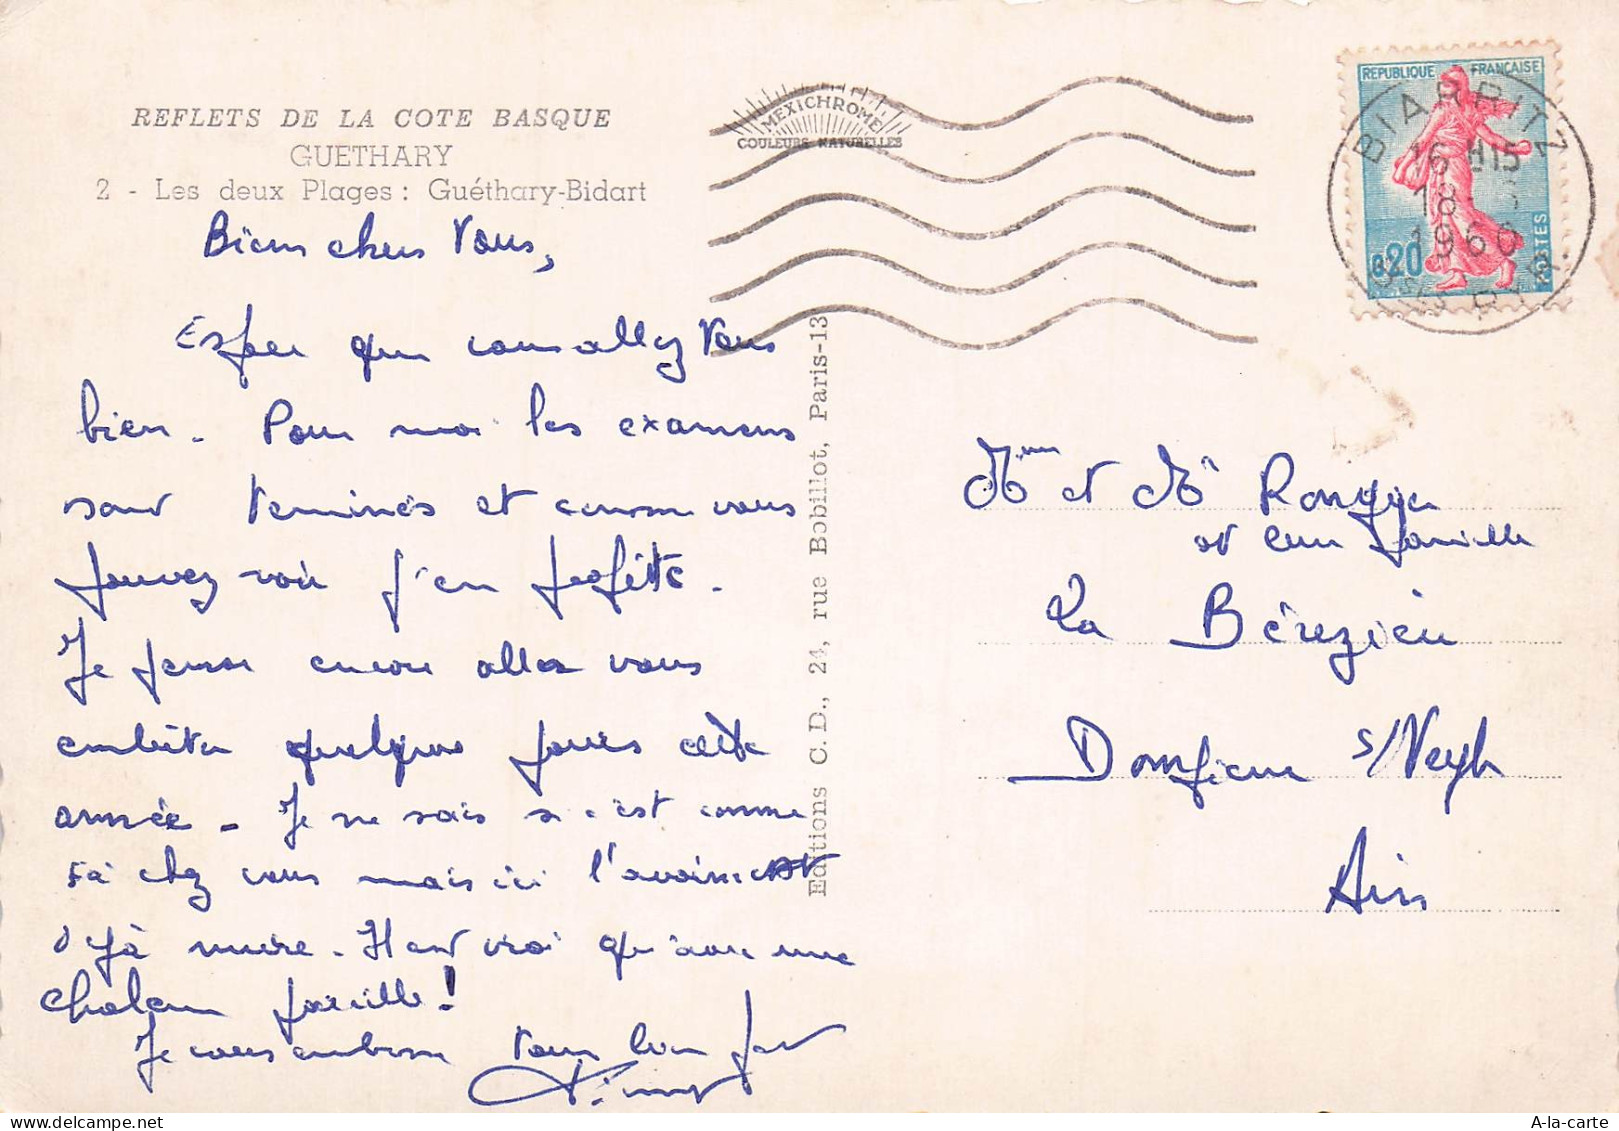 REFLETS DE LA COTE BASQUE
GUETHARY
2 - Les deux Plages : Guéthary-Bidart
MEXICHROME
COULEURS NATURELLES
REPUBLIQUE FRANÇAISE
0,20
POSTES
BIARRITZ
16 H15
18
1960
Bien chers Vous,
Espère que vous allez tous
bien. Pour moi les examens
sont terminés et comme vous
pouvez voir j'en profite.
Je pense encore aller vous
embêter quelques jours cette
année. Je ne sais si c'est comme
sà chez vous mais ici l'avoine est
déjà mure. Il est vrai qu'avec une
chaleur pareille!
Je vous embrasse tous bien fort
Editions C. D., 24, rue Bobillot, Paris-13
Mme et Mr
et leur famille
La
Dompierre s/Veyle
Ain
A-la-carte